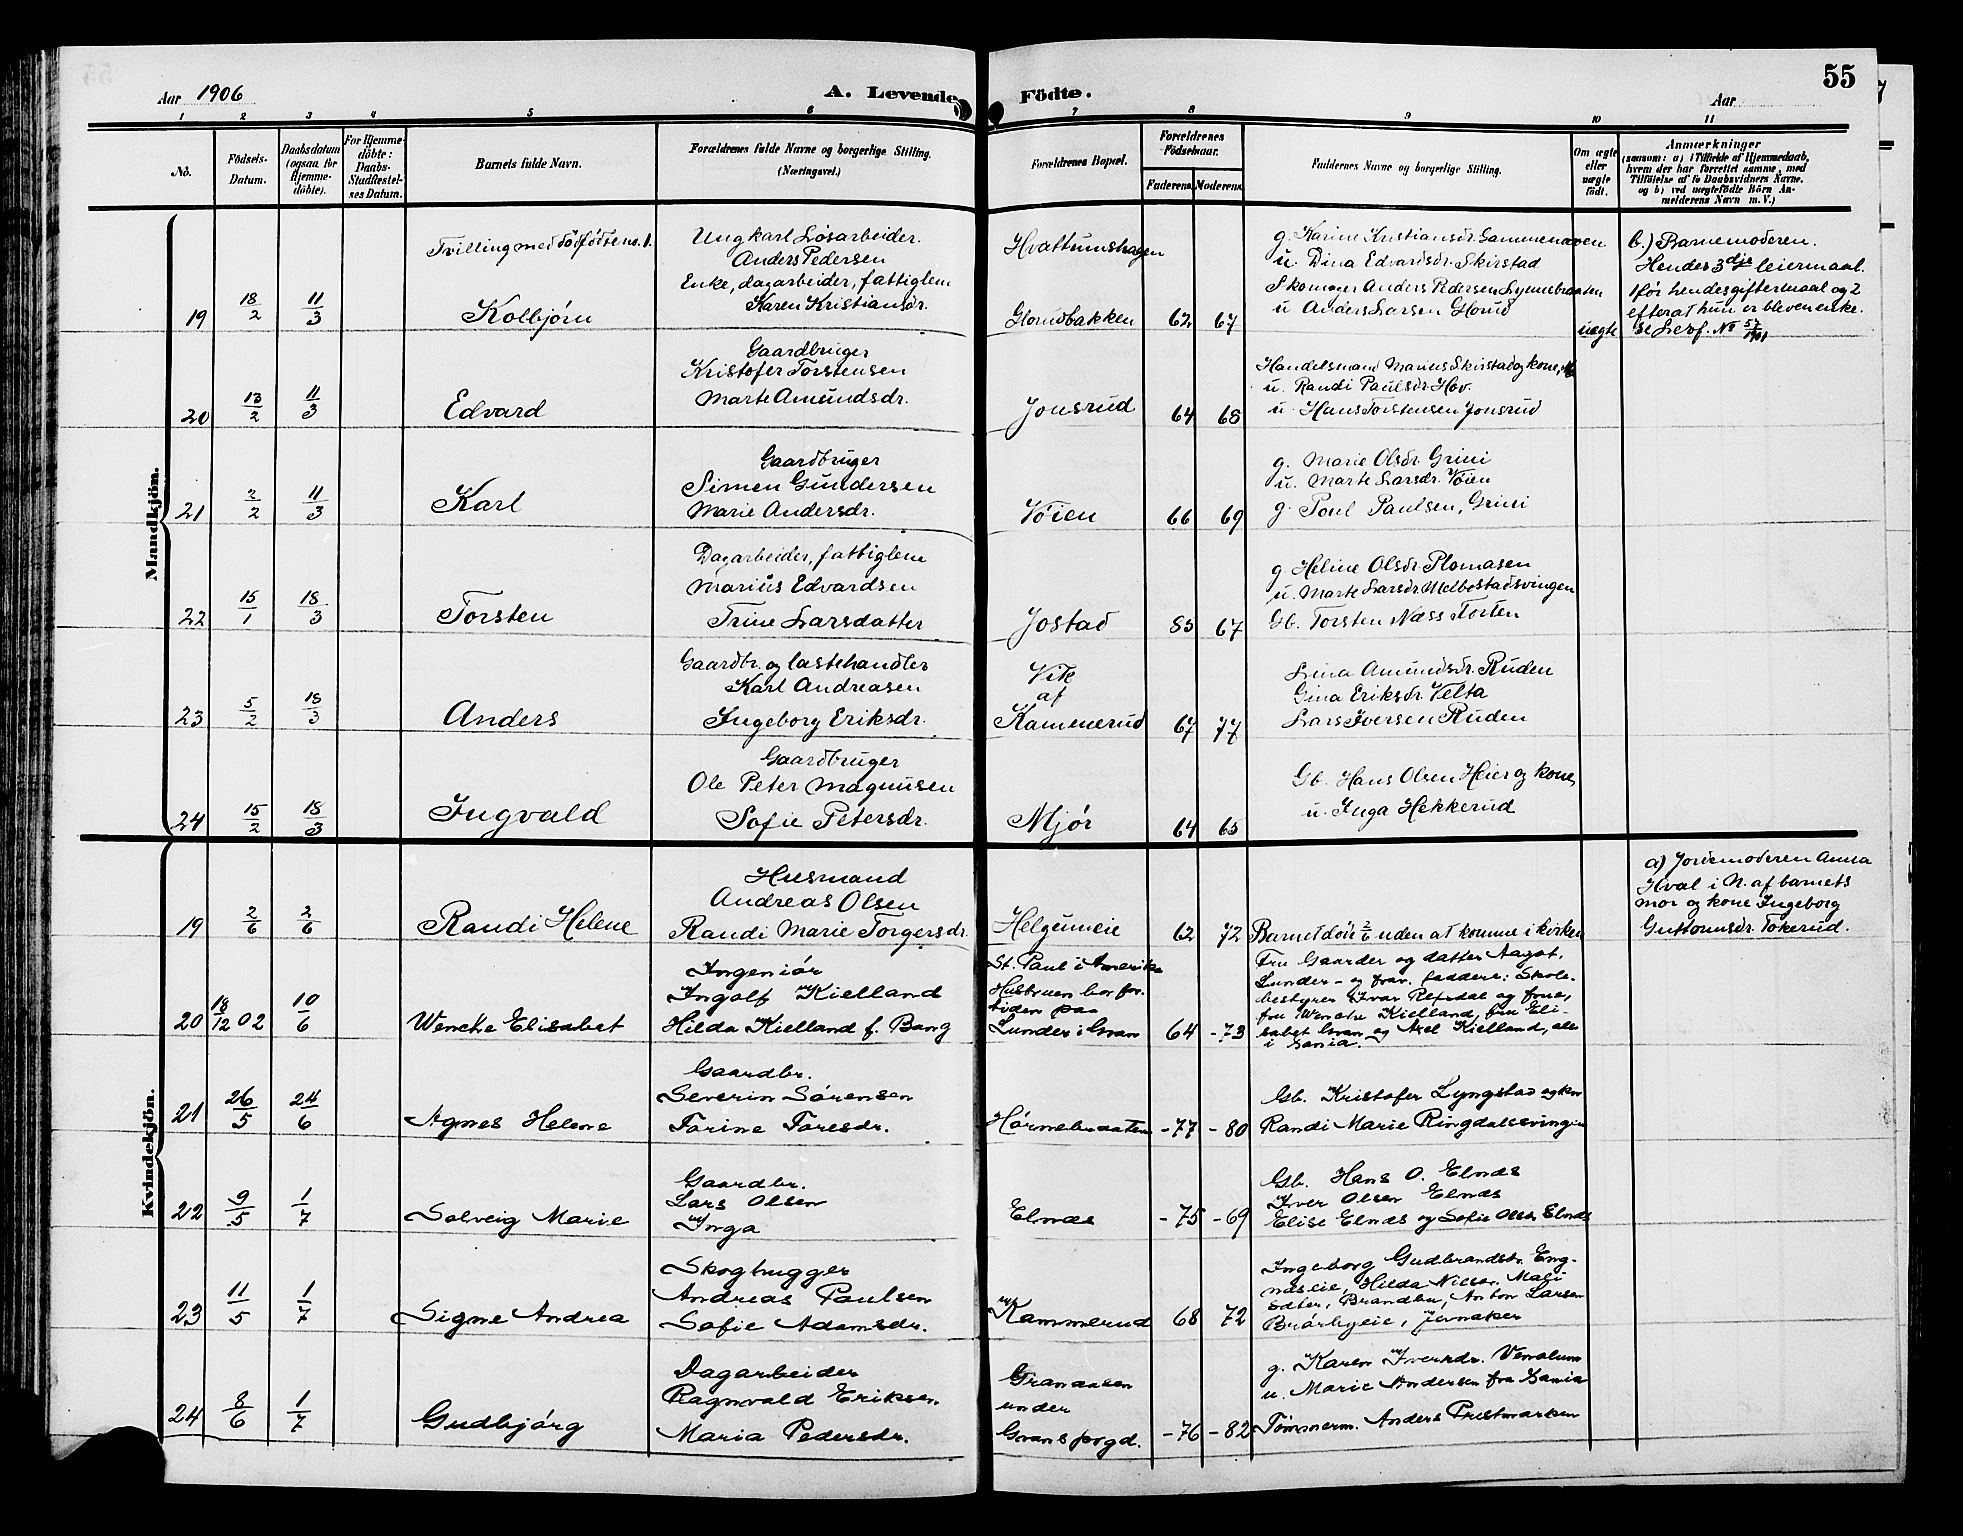 55
Aar 1906
A. Levende Födte.
Aar
1 2 3 4 5 6 7 8 9 10 11
No.
Födsels-Datum.
Daabsdatum (ogsaa for Hjemme-döbte).
For Hjemme-döbte: Daabs-Stadfæstel-ses Datum.
Barnets fulde Navn.
Forældrenes fulde Navne og borgerlige Stilling. (Næringsvei.)
Forældrenes Bopæl.
Forældrenes Födselsaar.
Faderens. Moderens.
Faddernes Navne og borgerlige Stilling.
Om ægte eller uægte födt.
Anmærkninger
(saasom: a) i Tilfælde af Hjemmedaab, hvem der har forrettet samme, med Tilföielse af to Daabsvidners Navne, og b) ved uægtefödte Börn An-melderens Navn m. V.)
Mandkjön.
Tvilling med dødfødte no. 1.
19 18/2 11/3 Kolbjørn
Ungkarl Løsarbeider.
Anders Pedersen
Enke, dagarbeider, fattiglem
Karen Kristiansdr.
Hvattumshagen
Glorudbakken 62 67
g. Karine Kristiansdr.
u. Dina Edvardsdr. Skirstad
Skomager Anders Pedersen
u Anders Larsen Horud
uægte
b.) Barnemoderen.
Hendes 3dje leiermaal.
1 før hendes giftermaal og 2
efterat hun er bleven enke.
20 13/2 11/3 Edvard
Gaardbruger
Kristofer Torstensen
Marte Amundsdr.
Jonsrud 64 68
Handelsmand Marius Skirstad og kone,
u. Randi Paulsdr. Hov.
u. Hans Torstensen Jonsrud
21 2/2 11/3 Karl
Gaardbruger
Simen Gundersen
Marie Andersdr.
Vøien 66 69
g. Marie Olsdr. Grini
u. Marte Larsdr. Vøien
g. Poul Paulsen, Grini
22 15/1 18/3 Torsten
Dagarbeider, fattiglem
Marius Edvardsen
Trine Larsdatter
Jostad 67
g. Heline Olsdr. Plomasen
u. Marte Larsdr. Melbostadsvingen
Gb. Torsten Næss Torten
23 5/2 18/3 Anders
Gaardbr. og læstehandler
Karl Andreasen
Ingeborg Eriksdr.
Vik
af
Kammerud 67 77
Lina Amundsdr. Ruden
Gina Eriksdr. Velta
Lars Iversen Ruden
24 15/2 18/3 Ingvald
Gaardbruger
Ole Peter Magnusen
Sofie Petersdr.
Mjør 64 65
Gb. Hans Olsen Heier og kone,
u. Inga Hekkerud
Kvindekjön.
19 2/6 2/6 Randi Helene
Husmand
Andreas Olsen
Randi Marie Torgersdr.
Helgumeie 62 72
Barnet døde 2/6 uden at komme i kirken
a) Jordemoderen Anna
Hval i N. af barnets
mor og kone Ingeborg
Guttormsdr. Tokerud.
20 18/12 02 10/6 Wenche Elisabet
Ingeniør
Ingolf Kielland
Hilda Kielland f. Bang
St. Paul i Amerika
Hustruen bor for-
tiden paa
Lunder i Gran 64 -73
Fru Gaarder og datter Aagot,
Lunder - og frav. faddere: Skole-
bestyrer Ivar Refsdal og frue,
fru Wenche Kielland, frk Eli-
sabet Gran og Axel Kielland, alle
i Xania.
21 26/5 24/6 Agnes Helene
Gaardbr.
Severin Sørensen
Torine Toresdr.
Hørnebraaten -77 -80
Gb. Kristofer Lyngstad og kon
Randi Marie Ringdalsvingen
22 9/5 1/7 Solveig Marie
Gaardbr.
Lars Olsen
Inga
Elnæs -75 -69
Gb. Hans O. Elnæs
Iver Olsen Elnæs
Elise Elnæs og Sofie Olsen Elnæs
23 11/5 1/7 Signe Andrea
Skoghugger
Andreas Paulsen
Sofie Adamsdr.
Kammerud 68 72
Ingeborg Gudbrandsdr. Eng-
næseie, Hilda Nilsen
Brandbu, Anton Larsen
Brørbyeie, Jevnaker
24 8/6 1/7 Gudbjørg
Dagarbeider
Ragnvald Eriksen
Maria Pedersdr.
Granaasen
under
Grans prgd. -76 -82
g. Karen Iversdr.
u. Marie Andersen fra Xania
Tømmerm. Anders Prestmarken